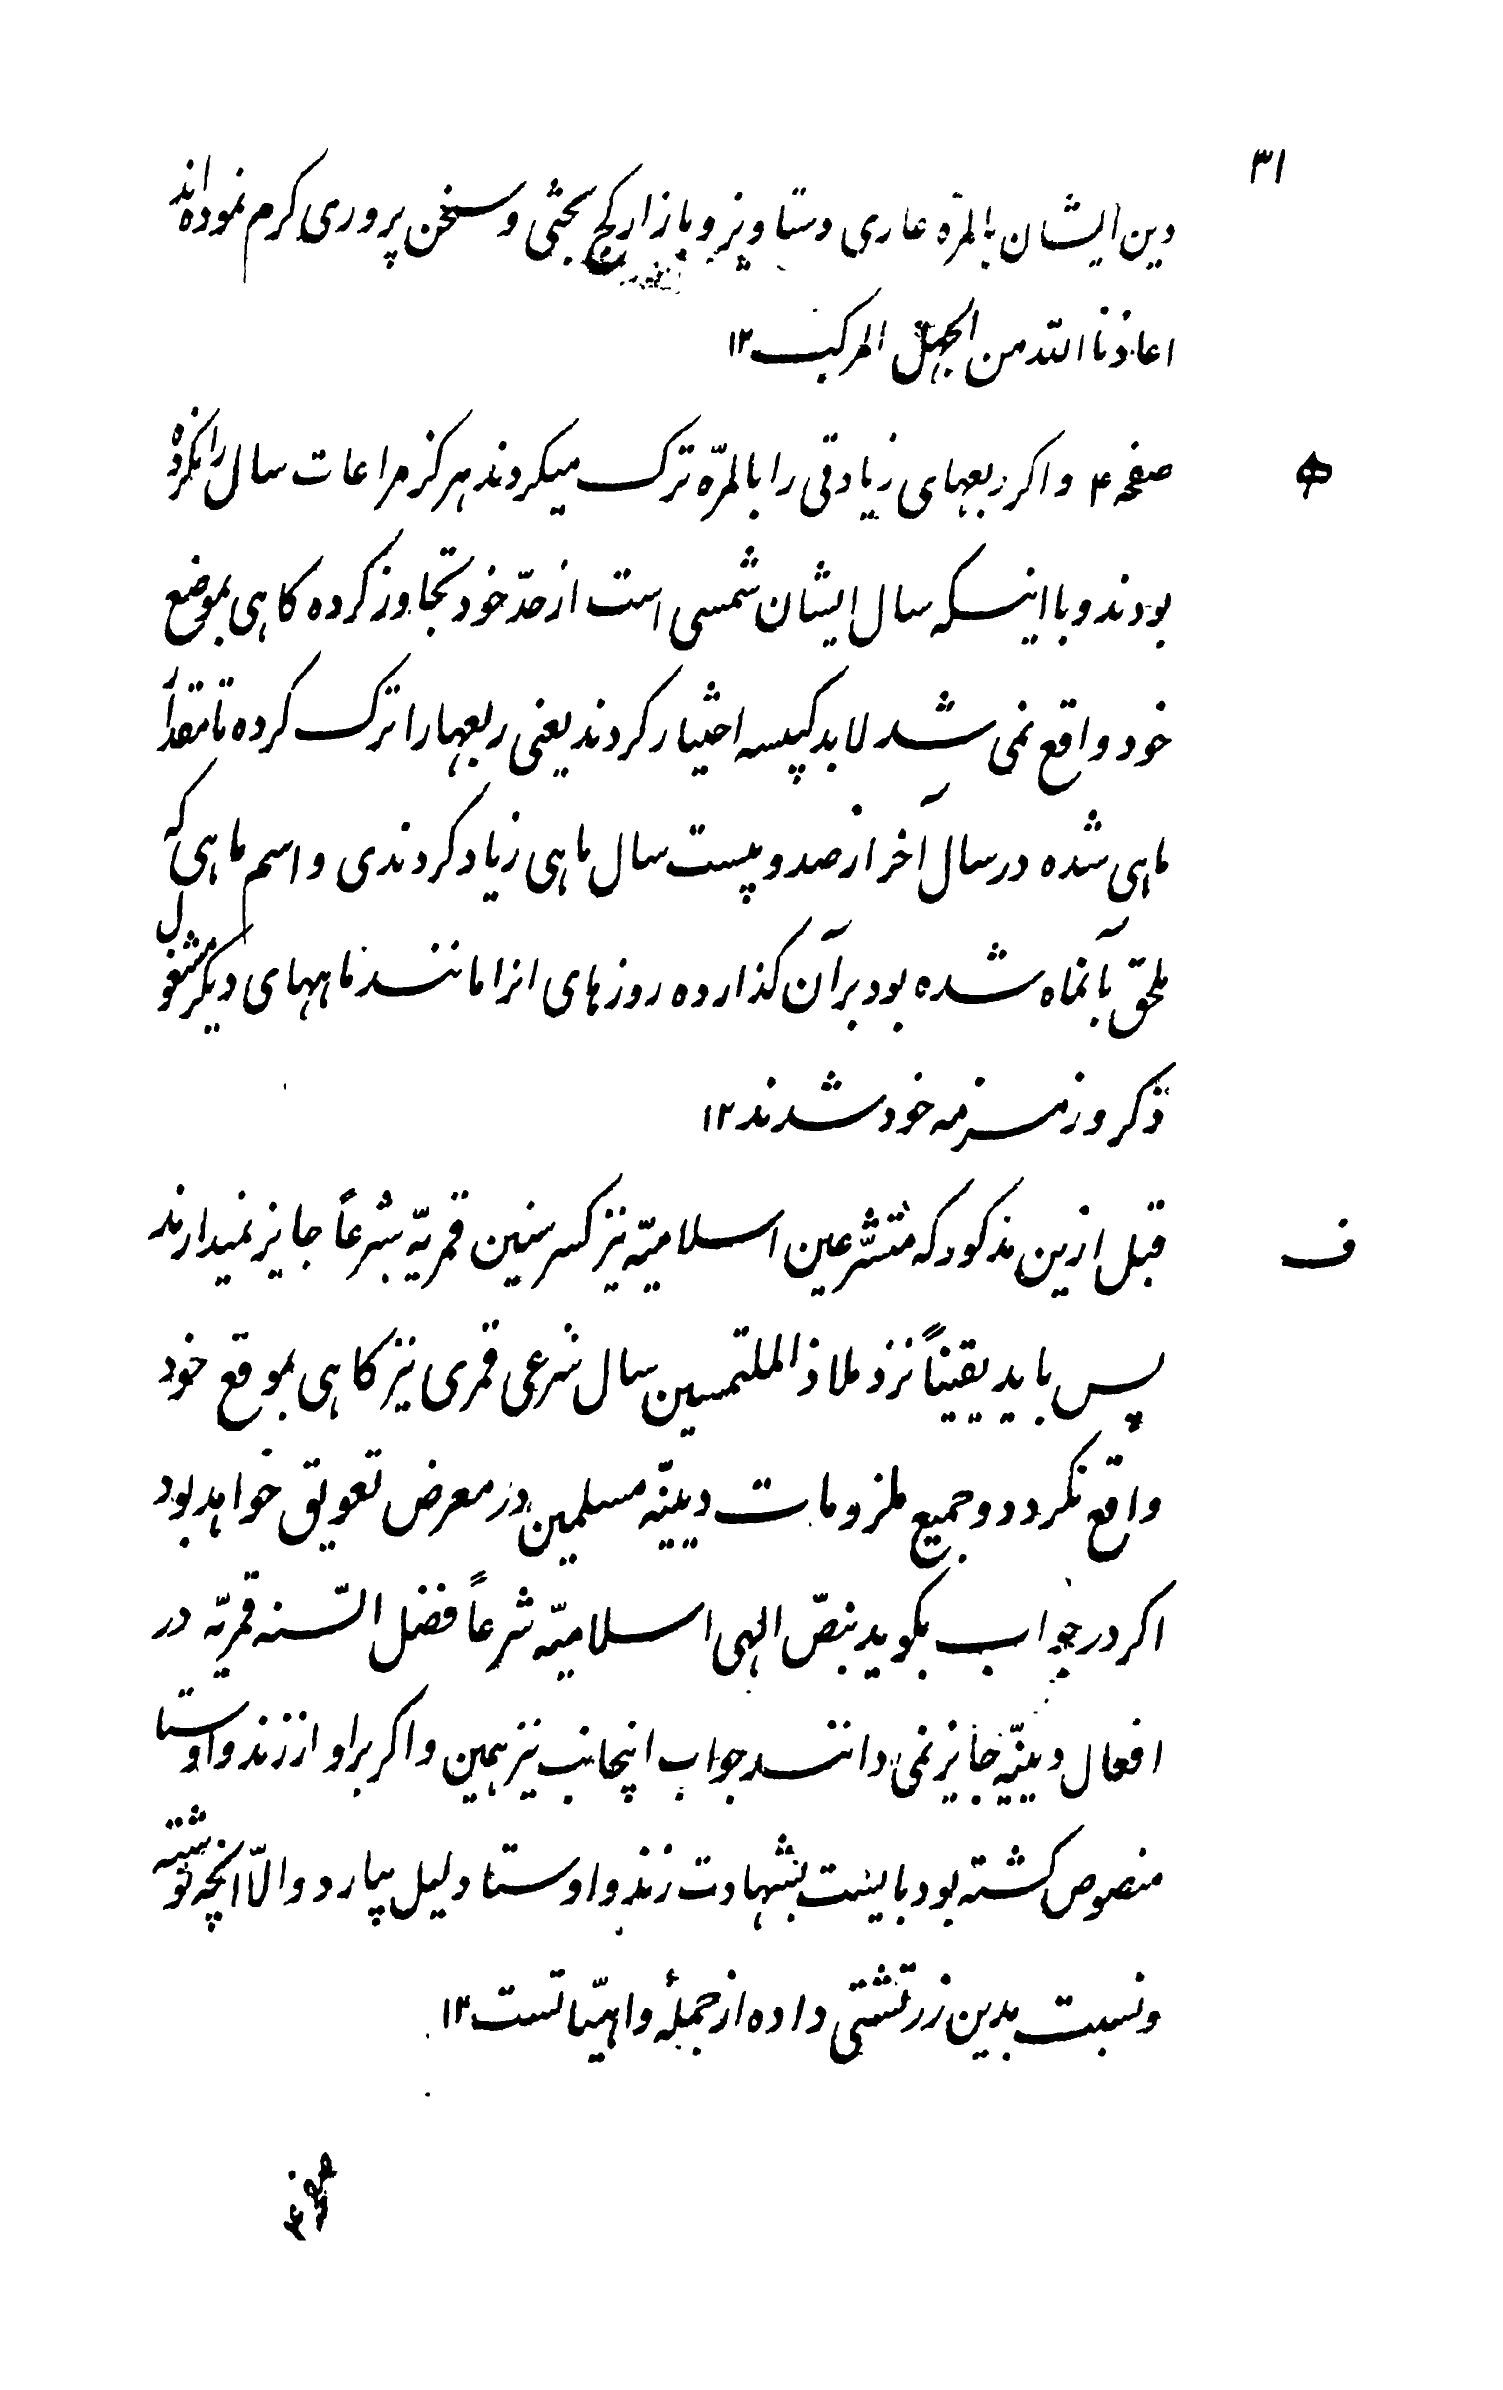 ۳۱
دین ایشان بالمره عاری دستاویز و بازار کج بحثی و سخن پروری کرم نموده‌اند
اعاذنا الله من الجهل المرکب ۱۲
صفحه ۴ واکر ربعهای زیادتی را بالمرّه ترک میکردند هرکز مراعات سال را نکرده
بودند و با اینکه سال ایشان شمسی است از حدّ خود تجاوز کرده کاهی بموضع
خود واقع نمی شد لابد کپیسه اختیار کردند یعنی ربعها را ترک کرده تا مقدار
ماهی شده در سال آخر از صد و پیست سال ماهی زیاد کردندی و اسم ماهی که
ملحق بآنماه شده بود برآن کذارده روزهای انرا مانند ماههای دیکر مشغول
ذکر و زمزمه خود شدند ۱۲
ف قبل ازین مذکور که متشرّعین اسلامیّه نیز کسر سنین قمریّه بشرعاً جایز نمیدارند
پس باید یقیناً نزد ملاذ الملتمسین سال شرعی قمری نیز کاهی بموقع خود
واقع نکردد و جمیع ملزومات دینیّه مسلمین در معرض تعویق خواهد بود
اکر در جواب بکوید بنصّ الهی اسلامیّه شرعاً فضل السّنه قمریّه در
افعال دینیّه جایز نمی دانند جواب اینجانب نیز همین واکر براو از زند واوستا
منصوص کشته بود بایست بشهادت زند واوستا دلیل بیارد والّا انچه نوشته
ونسبت بدین زرتشتی داده از جملهٔ واهیّاتست ۱۲